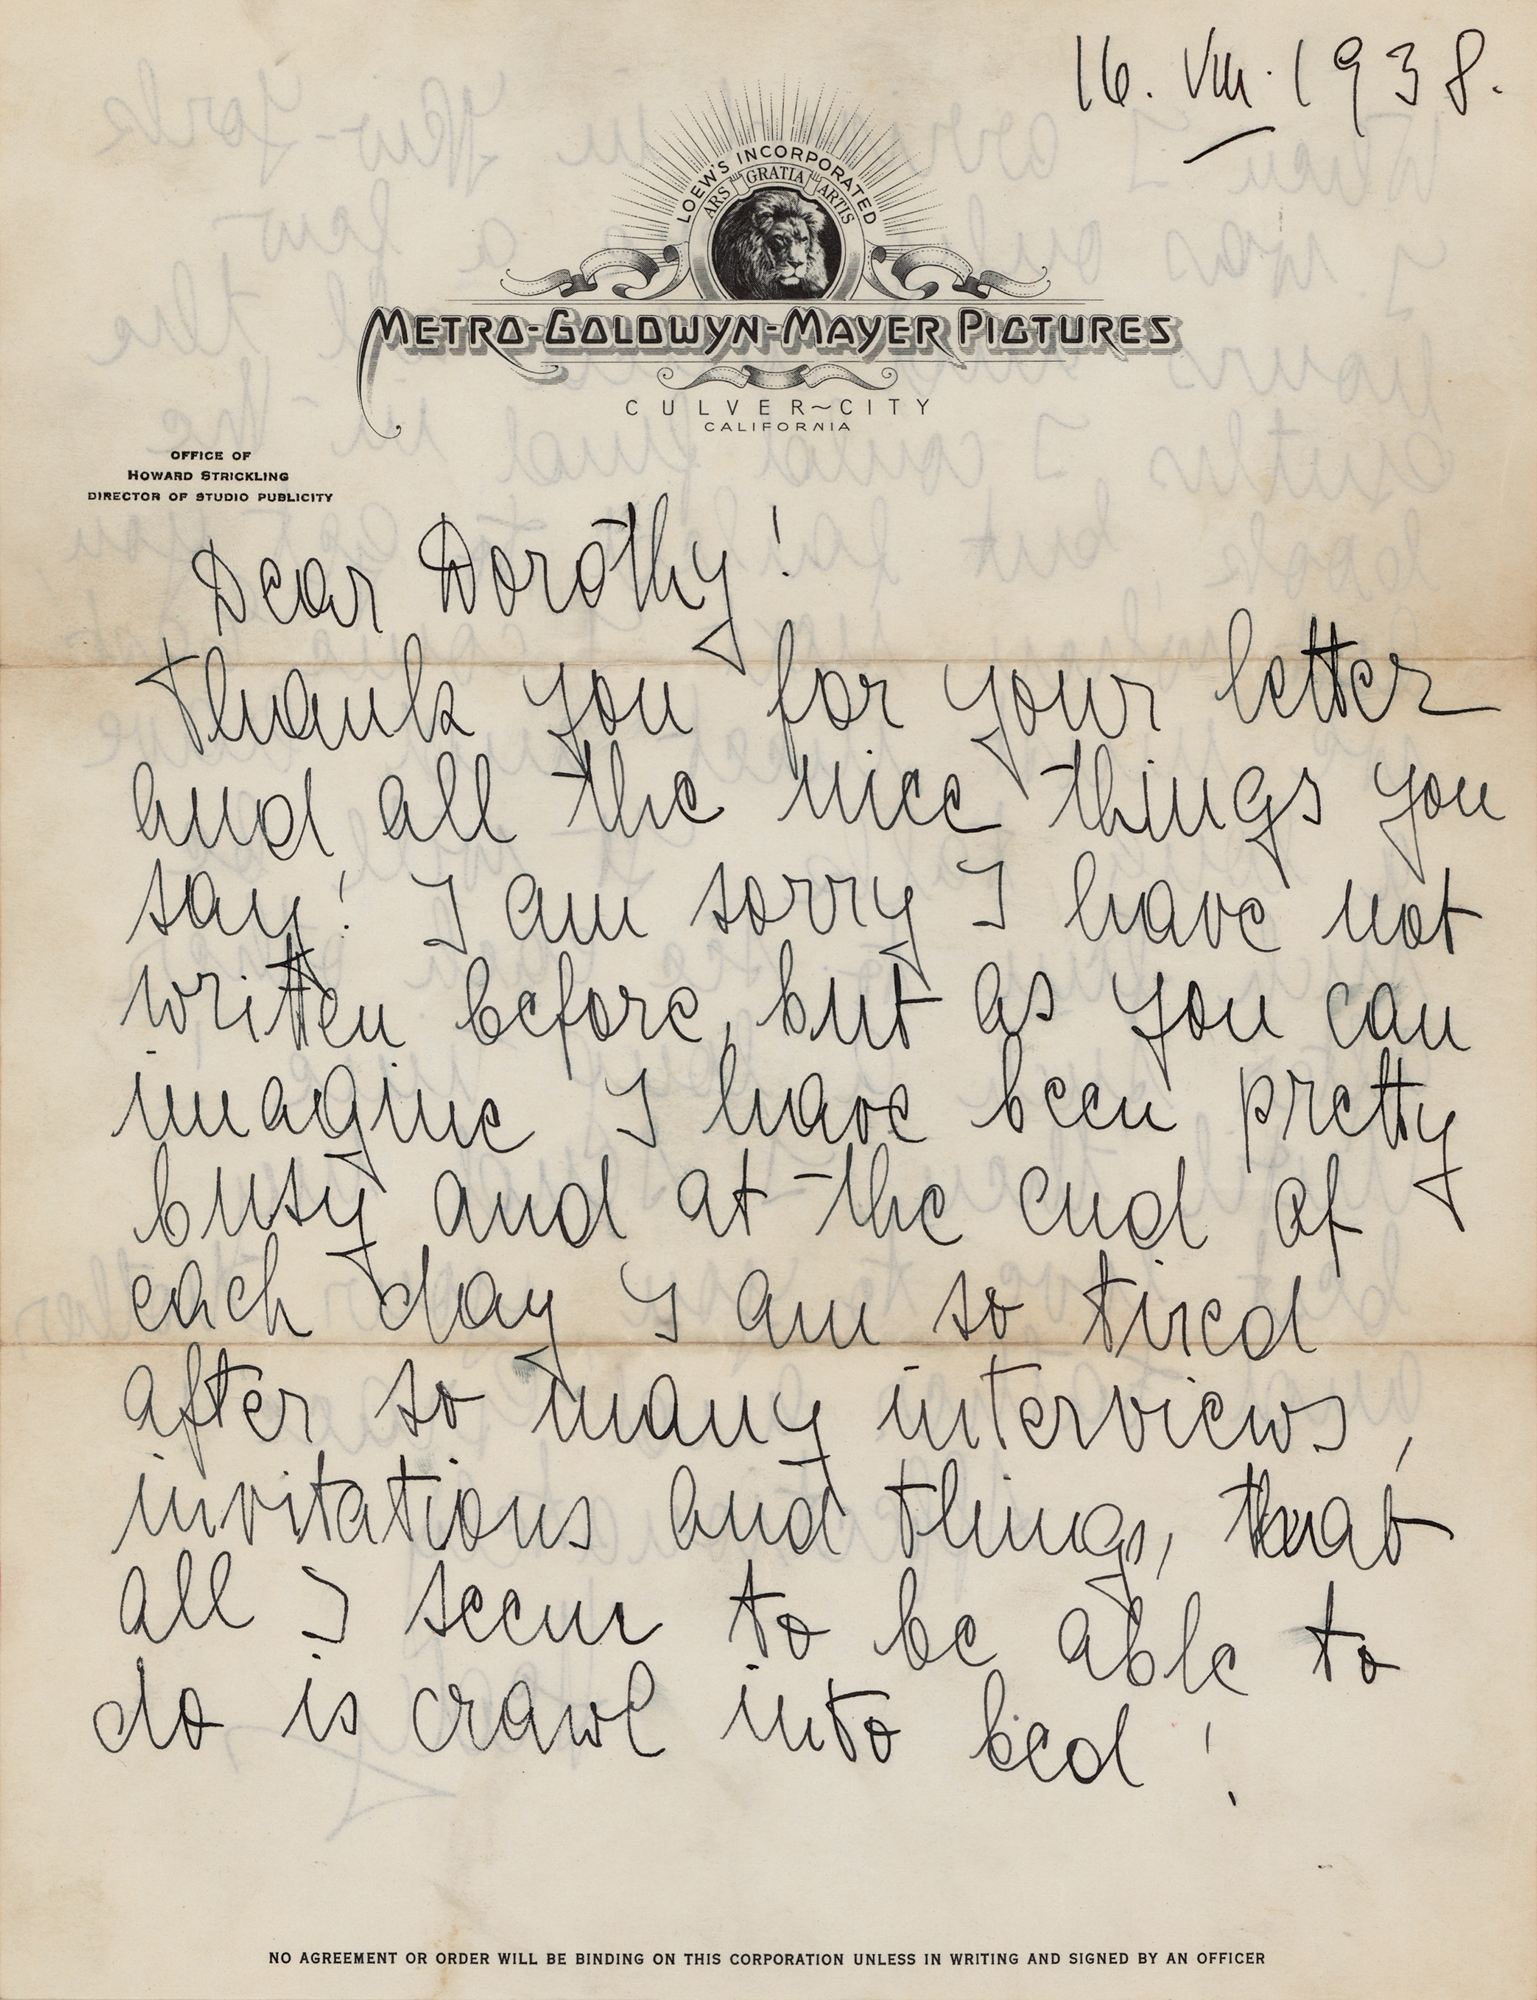 16. VIII. 1938.
LOEW'S INCORPORATED
ARS GRATIA ARTIS
METRO-GOLDWYN-MAYER PICTURES
CULVER~CITY
CALIFORNIA
OFFICE OF
HOWARD STRICKLING
DIRECTOR OF STUDIO PUBLICITY
Dear Dorothy!
Thank you for your letter
and all the nice things you
say! I am sorry I have not
written before, but as you can
imagine I have been pretty
busy and at the end of
each day I am so tired
after so many interviews,
invitations and things, that
all I seem to be able to
do is crawl into bed!
NO AGREEMENT OR ORDER WILL BE BINDING ON THIS CORPORATION UNLESS IN WRITING AND SIGNED BY AN OFFICER